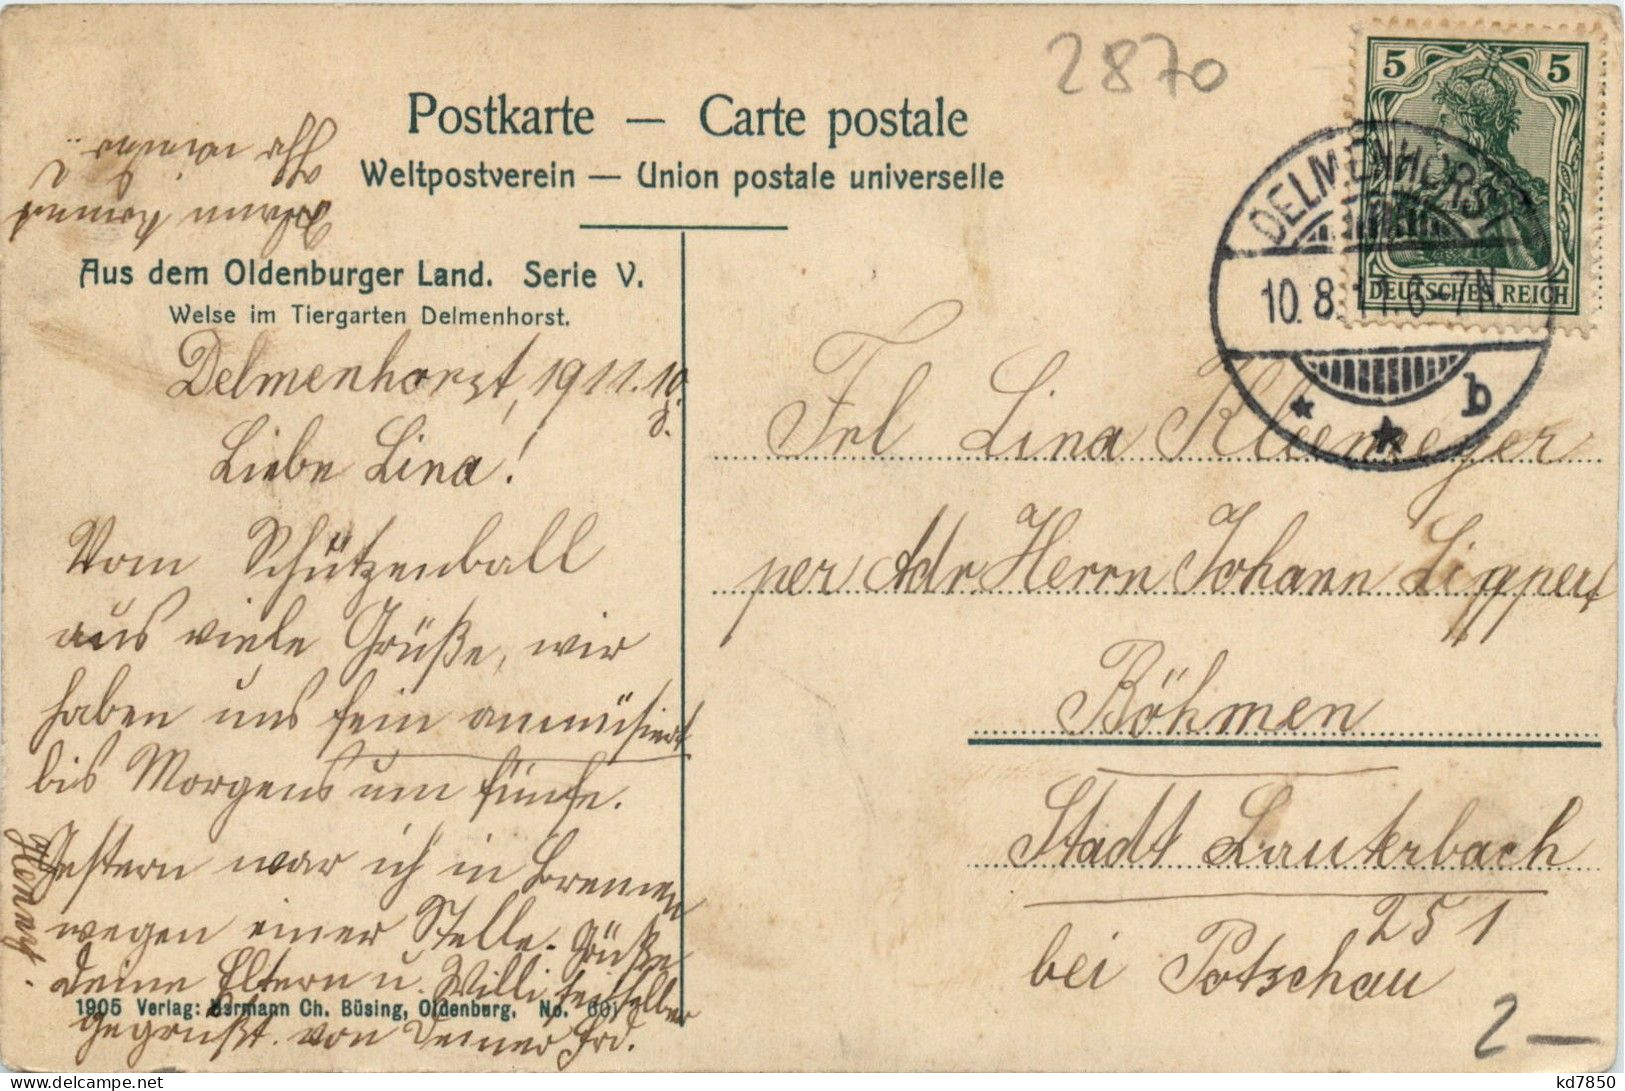 2870
Postkarte — Carte postale
Weltpostverein — Union postale universelle
5 5
DEUTSCHES REICH
DELMENHORST
10.8.11.6-7N.
* * b
Aus dem Oldenburger Land. Serie V.
Welse im Tiergarten Delmenhorst.
Delmenhorst, 1911.10.
8.
Liebe Lina!
Vom Schützenball
aus viele Grüße, wir
haben uns fein ammüsiert
bis Morgens um fünfe.
Gestern war ich in Bremen
wegen einer Stelle. Grüße
Deine Eltern u. Willi sei selber
gegrüßt von Deiner Frd.
wann kommst
Ihr wieder
1905 Verlag: Hermann Ch. Büsing, Oldenburg, No. 601
Frl Lina Kleemeyer
per Adr. Herrn Johann Lippert
Böhmen
Stadt Lauterbach
251
bei Potschau
2 —
kd7850